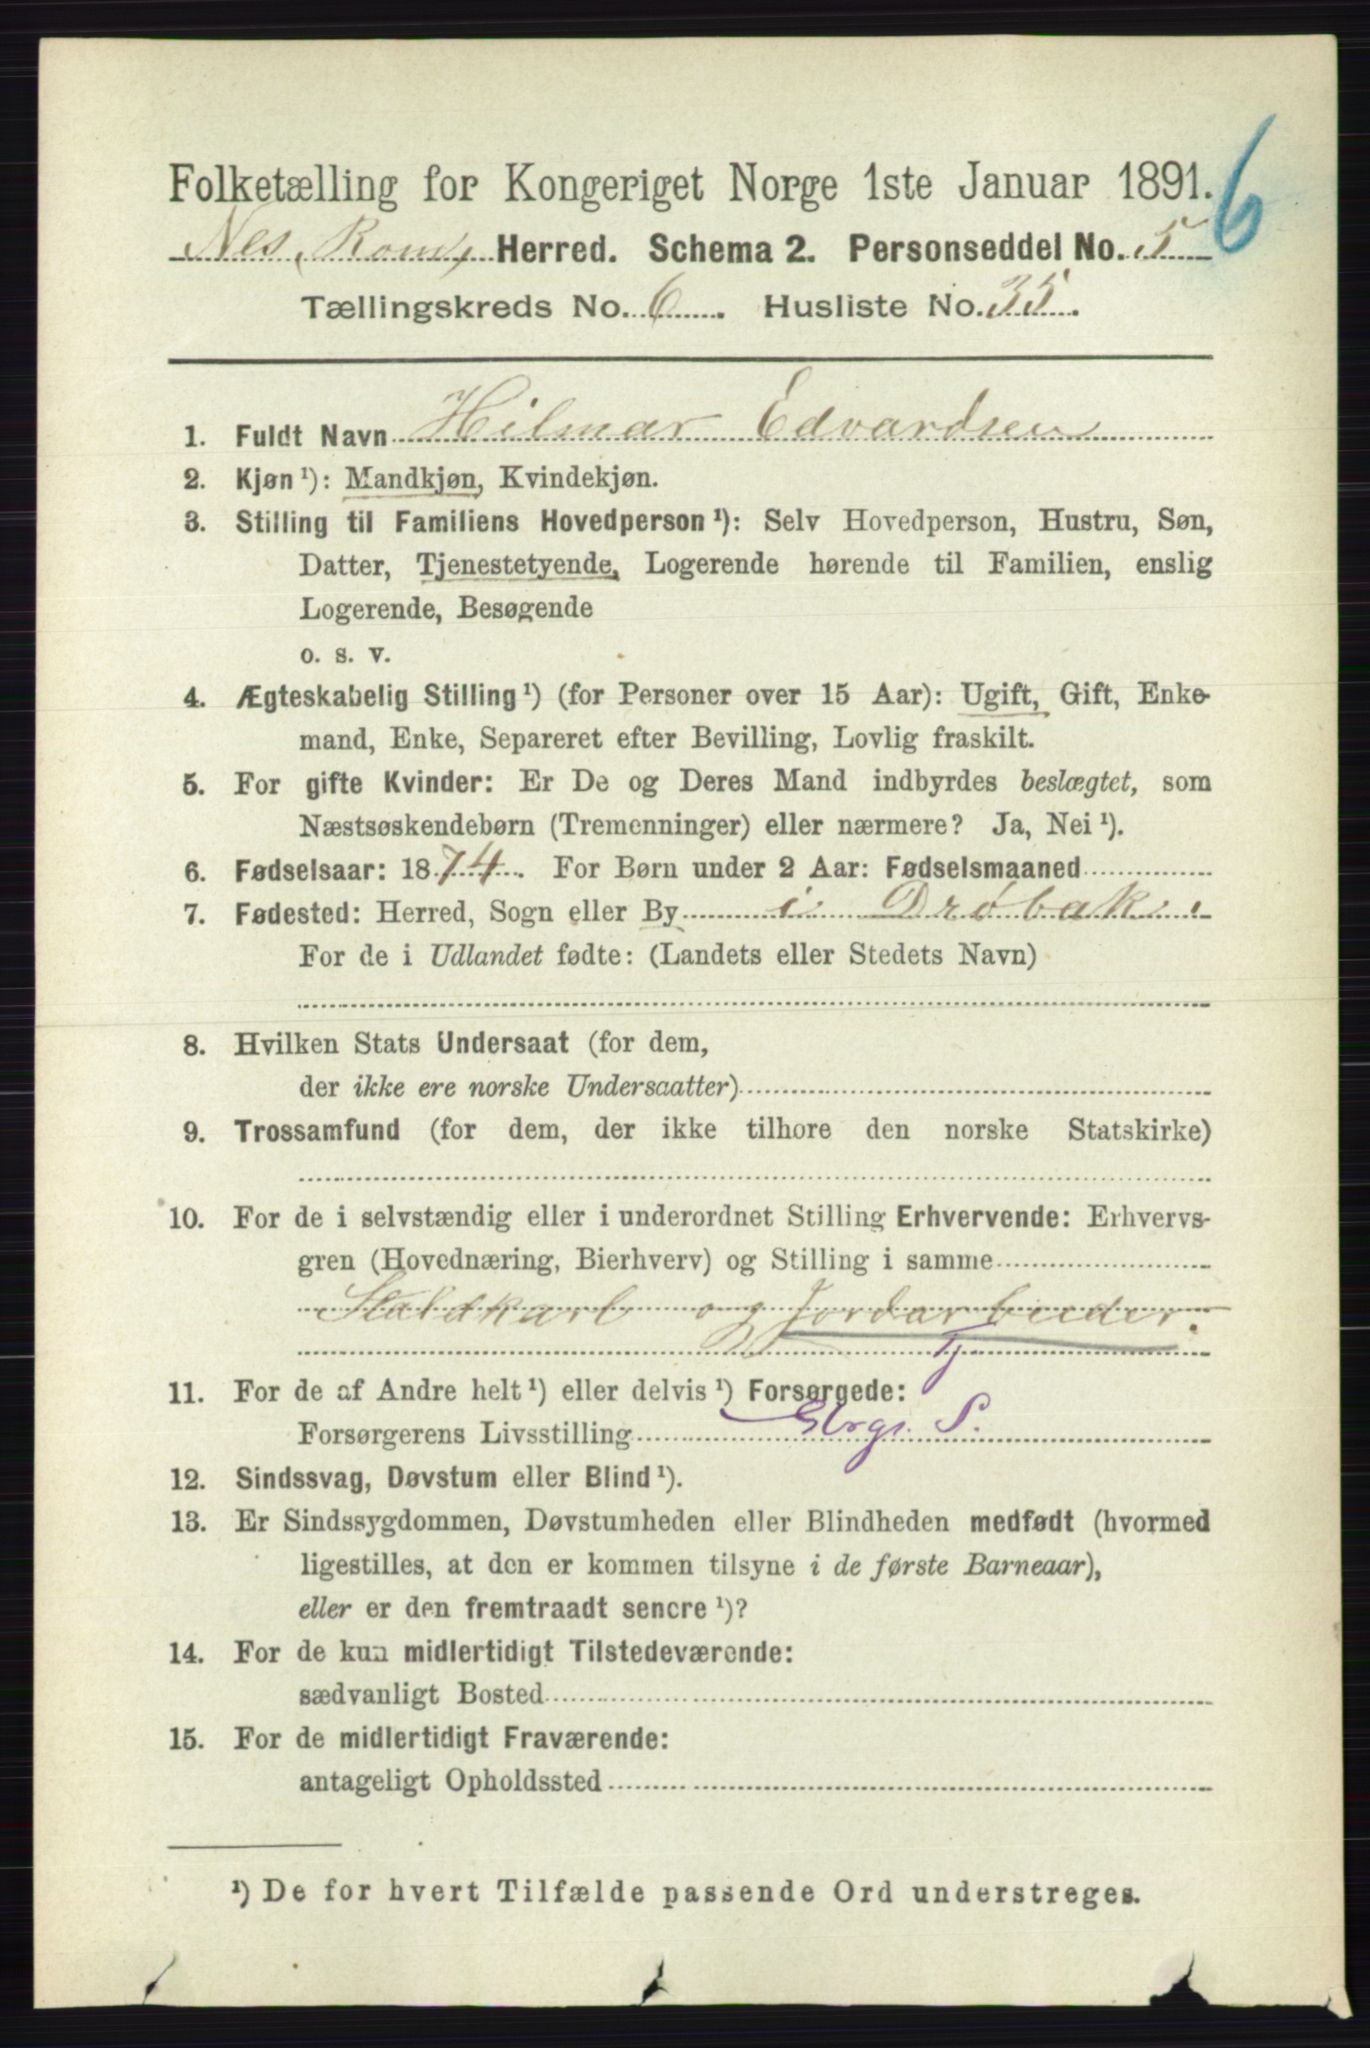 6
Folketælling for Kongeriget Norge 1ste Januar 1891.
Nes, Rom, Herred. Schema 2. Personseddel No. 5
Tællingskreds No. 6. Husliste No. 35.
1. Fuldt Navn Hilmar Edvardsen
2. Kjøn¹): Mandkjøn, Kvindekjøn.
3. Stilling til Familiens Hovedperson¹): Selv Hovedperson, Hustru, Søn,
Datter, Tjenestetyende, Logerende hørende til Familien, enslig
Logerende, Besøgende
o. s. v.
4. Ægteskabelig Stilling¹) (for Personer over 15 Aar): Ugift, Gift, Enke-
mand, Enke, Separeret efter Bevilling, Lovlig fraskilt.
5. For gifte Kvinder: Er De og Deres Mand indbyrdes beslægtet, som
Næstsøskendebørn (Tremenninger) eller nærmere? Ja, Nei¹).
6. Fødselsaar: 1874. For Børn under 2 Aar: Fødselsmaaned
7. Fødested: Herred, Sogn eller By i Drøbak.
For de i Udlandet fødte: (Landets eller Stedets Navn)
8. Hvilken Stats Undersaat (for dem,
der ikke ere norske Undersaatter)
9. Trossamfund (for dem, der ikke tilhøre den norske Statskirke)
10. For de i selvstændig eller i underordnet Stilling Erhvervende: Erhvervs-
gren (Hovednæring, Bierhverv) og Stilling i samme
Staldkarl og Jordarbeider.
Tj
11. For de af Andre helt¹) eller delvis¹) Forsørgede:
Forsørgerens Livsstilling S.
12. Sindssvag, Døvstum eller Blind¹).
13. Er Sindssygdommen, Døvstumheden eller Blindheden medfødt (hvormed
ligestilles, at den er kommen tilsyne i de første Barneaar),
eller er den fremtraadt senere¹)?
14. For de kun midlertidigt Tilstedeværende:
sædvanligt Bosted
15. For de midlertidigt Fraværende:
antageligt Opholdssted
¹) De for hvert Tilfælde passende Ord understreges.